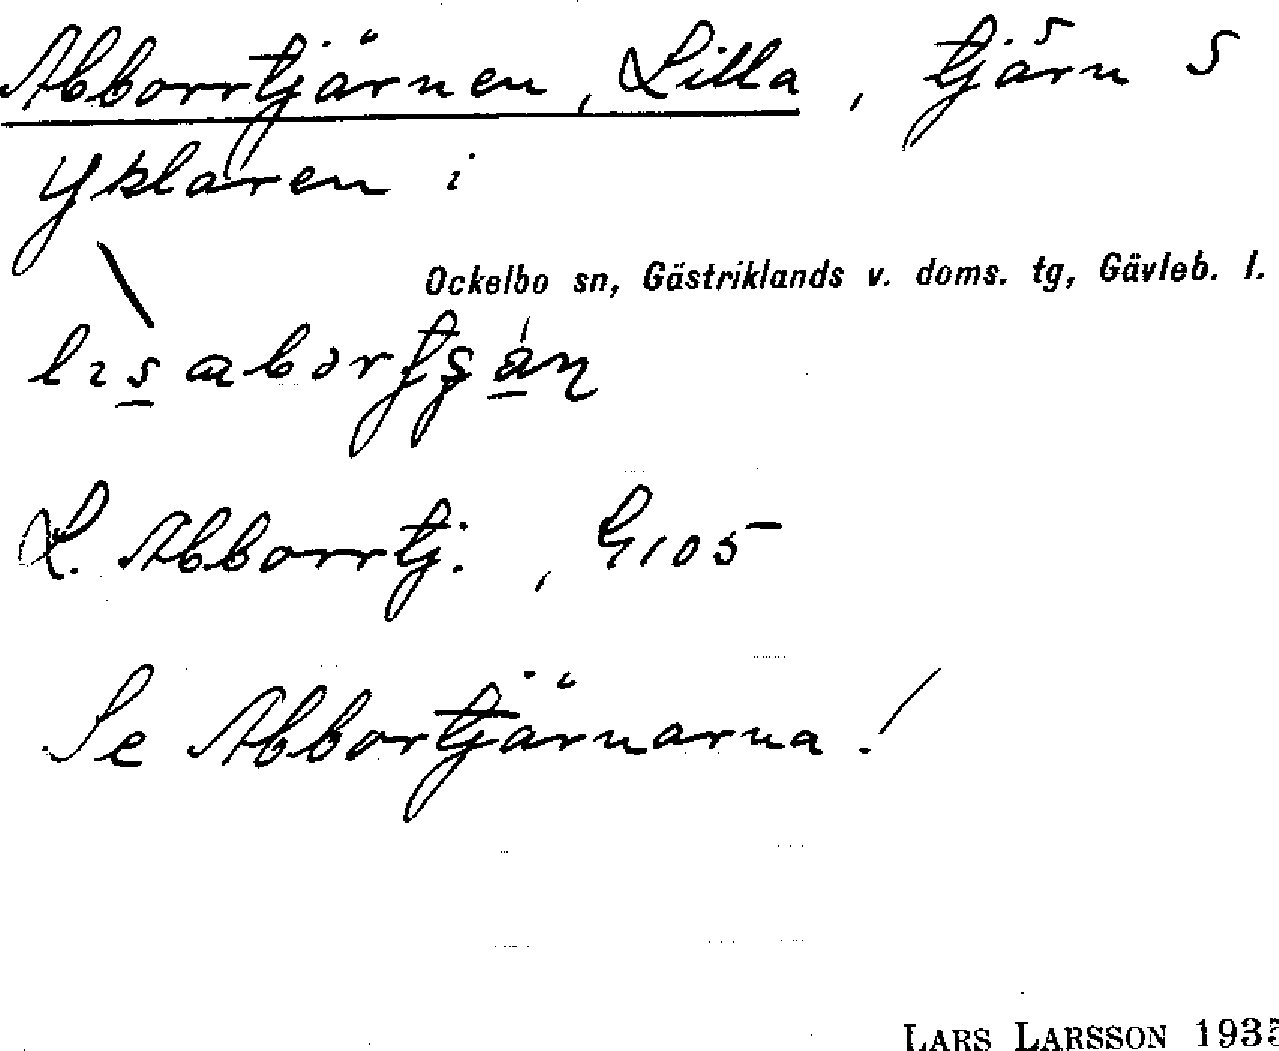 Abborrtjärnen, Lilla, tjärn S
Yklaren i
Ockelbo sn, Gästriklands v. doms. tg, Gävleb. l.
L. Abborrtj., G105
Se Abbortjärnarna!
LARS LARSSON 1935